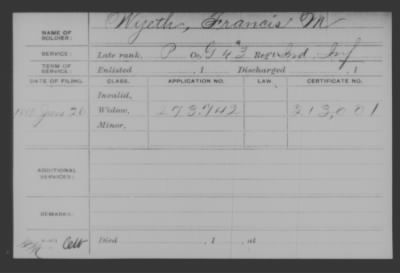 NAME OF SOLDIER: Wyeth, Francis M
SERVICE: Late rank, P Co. G 43 Reg't Ind. Inf
TERM OF SERVICE: Enlisted , 1 Discharged , 1
DATE OF FILING. CLASS. APPLICATION NO. LAW. CERTIFICATE NO.
Invalid,
June 20 Widow, 273,942 313,001
Minor,
ADDITIONAL SERVICES:
REMARKS:
Died , 1 , at